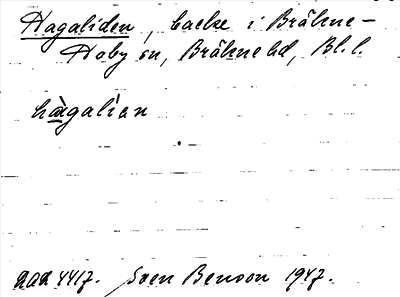 Hagaliden, backe i Bräkne-
Hoby sn, Bräkne hd, Bl. l.
hàgalían
dad 4417. Sven Benson 1947.